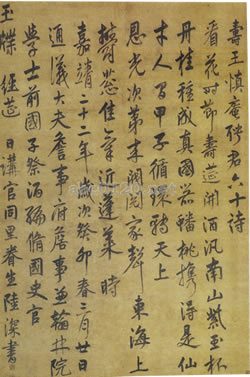 壽王慎庵聘君六十詩
看花時節壽筵開酒汎南山紫玉杯
丹桂種成真國器蟠桃携得是仙
才人間甲子循環轉天上
恩光次第來閥閱家聲東海上
鬱葱佳氣近蓬萊 時
嘉靖二十二年歲次癸卯春三月廿日
通議大夫詹事府詹事兼翰林院
學士前國子祭酒編脩國史官
玉牒經筵日講官同里眷生陸深書